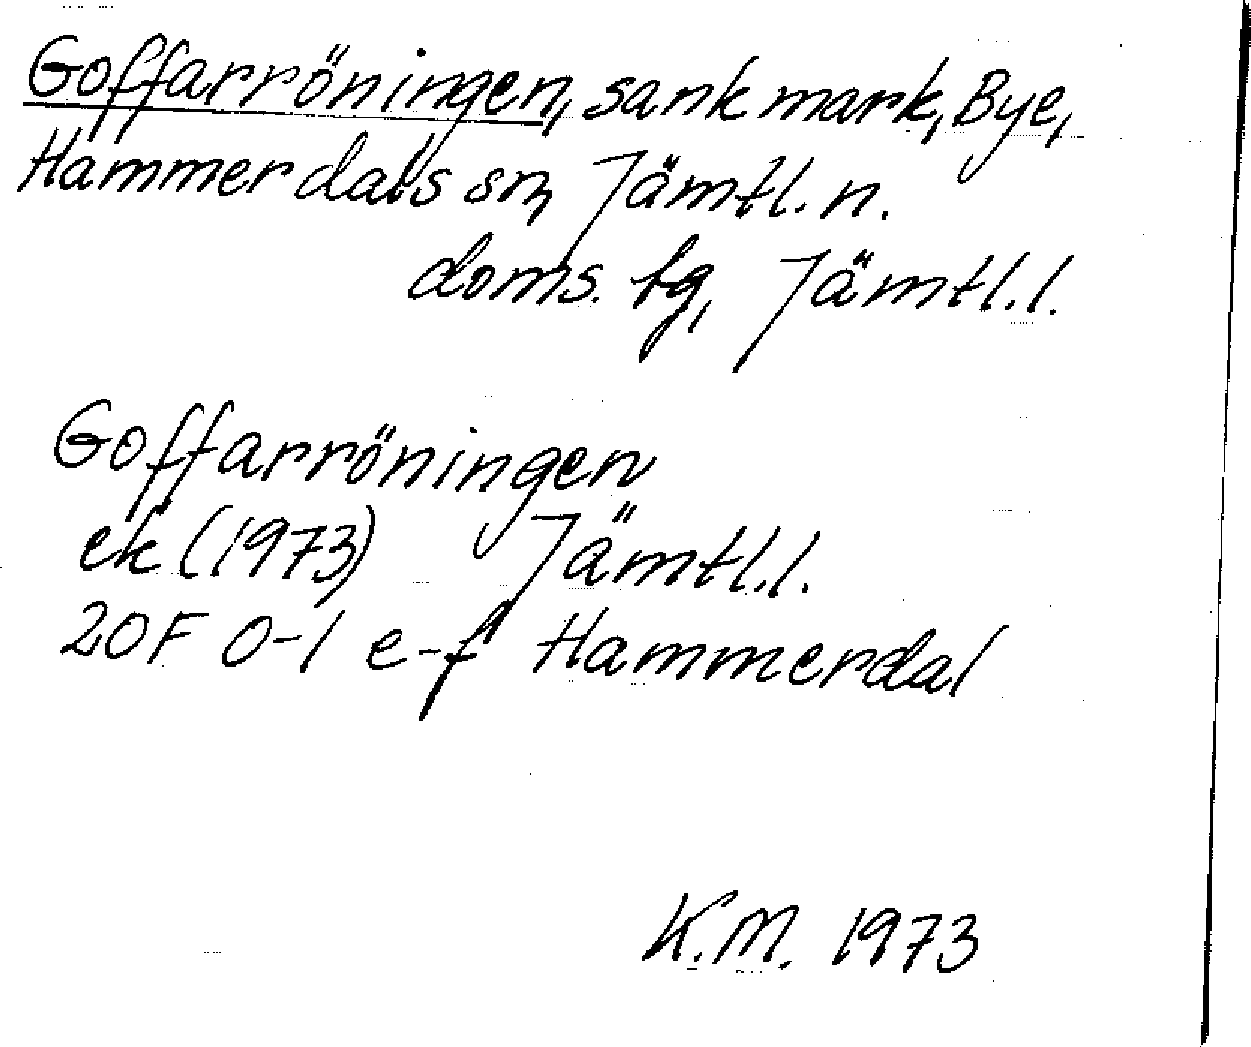 Goffarröningen, sank mark, Bye,
Hammerdals sn, Jämtl. n.
doms. tg, Jämtl. l.
Goffarröningen
ek (1973) Jämtl. l.
20F 0-1 e-f Hammerdal
K.M. 1973